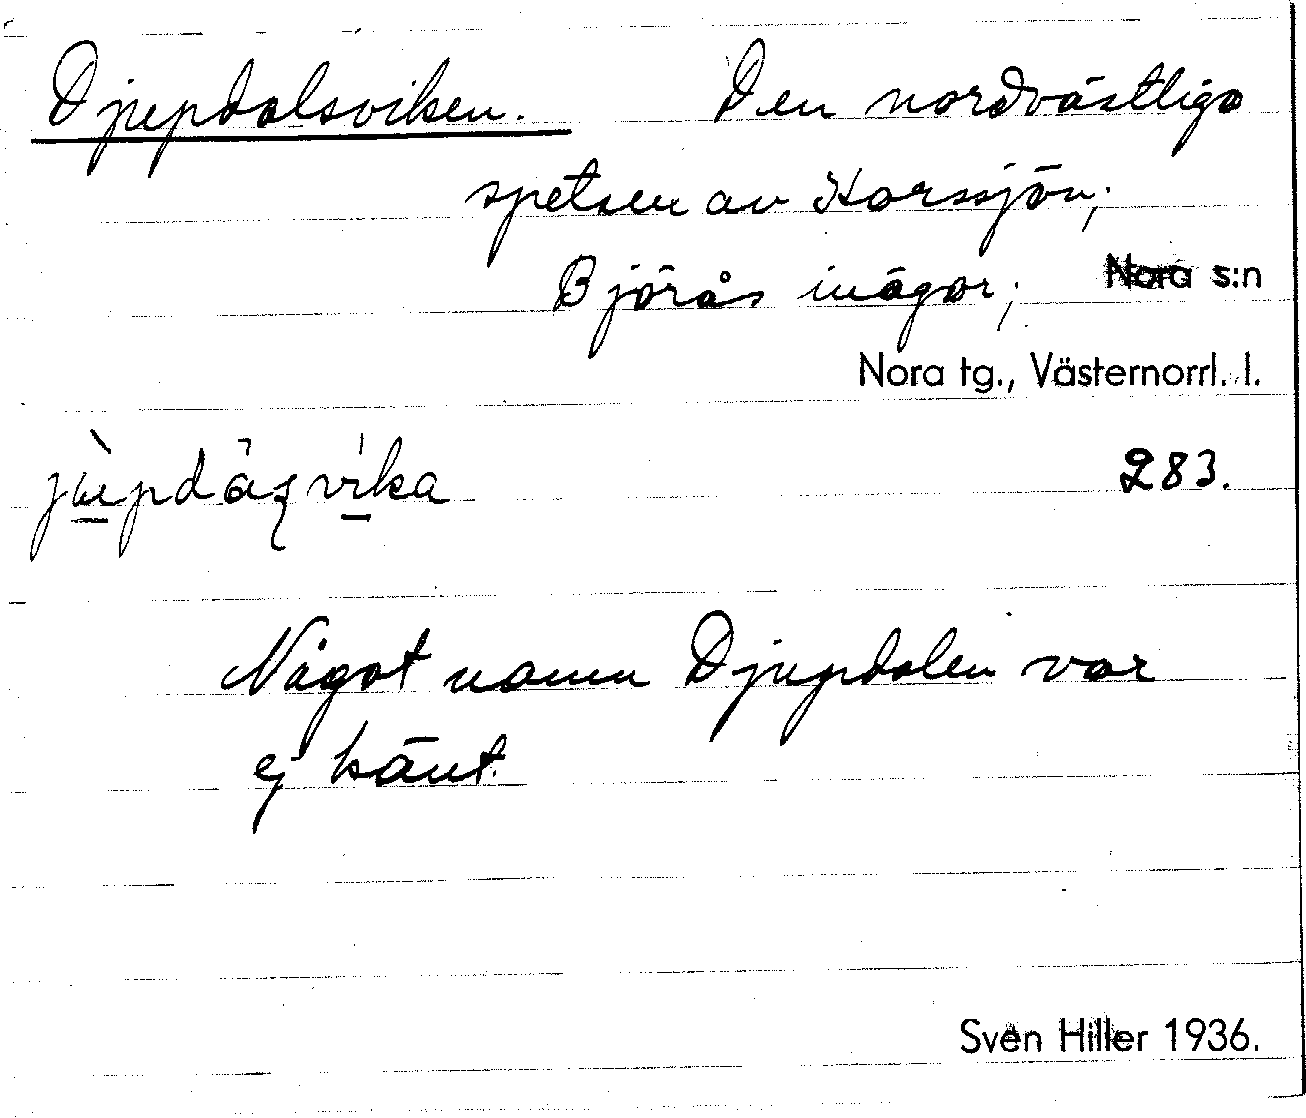 Djupdalsviken. Den nordvästliga
spetsen av Korssjön;
Björås inägor; Nora s:n
Nora tg., Västernorrl. l.
283.
Något namn Djupdalen var
ej känt.
Sven Hiller 1936.